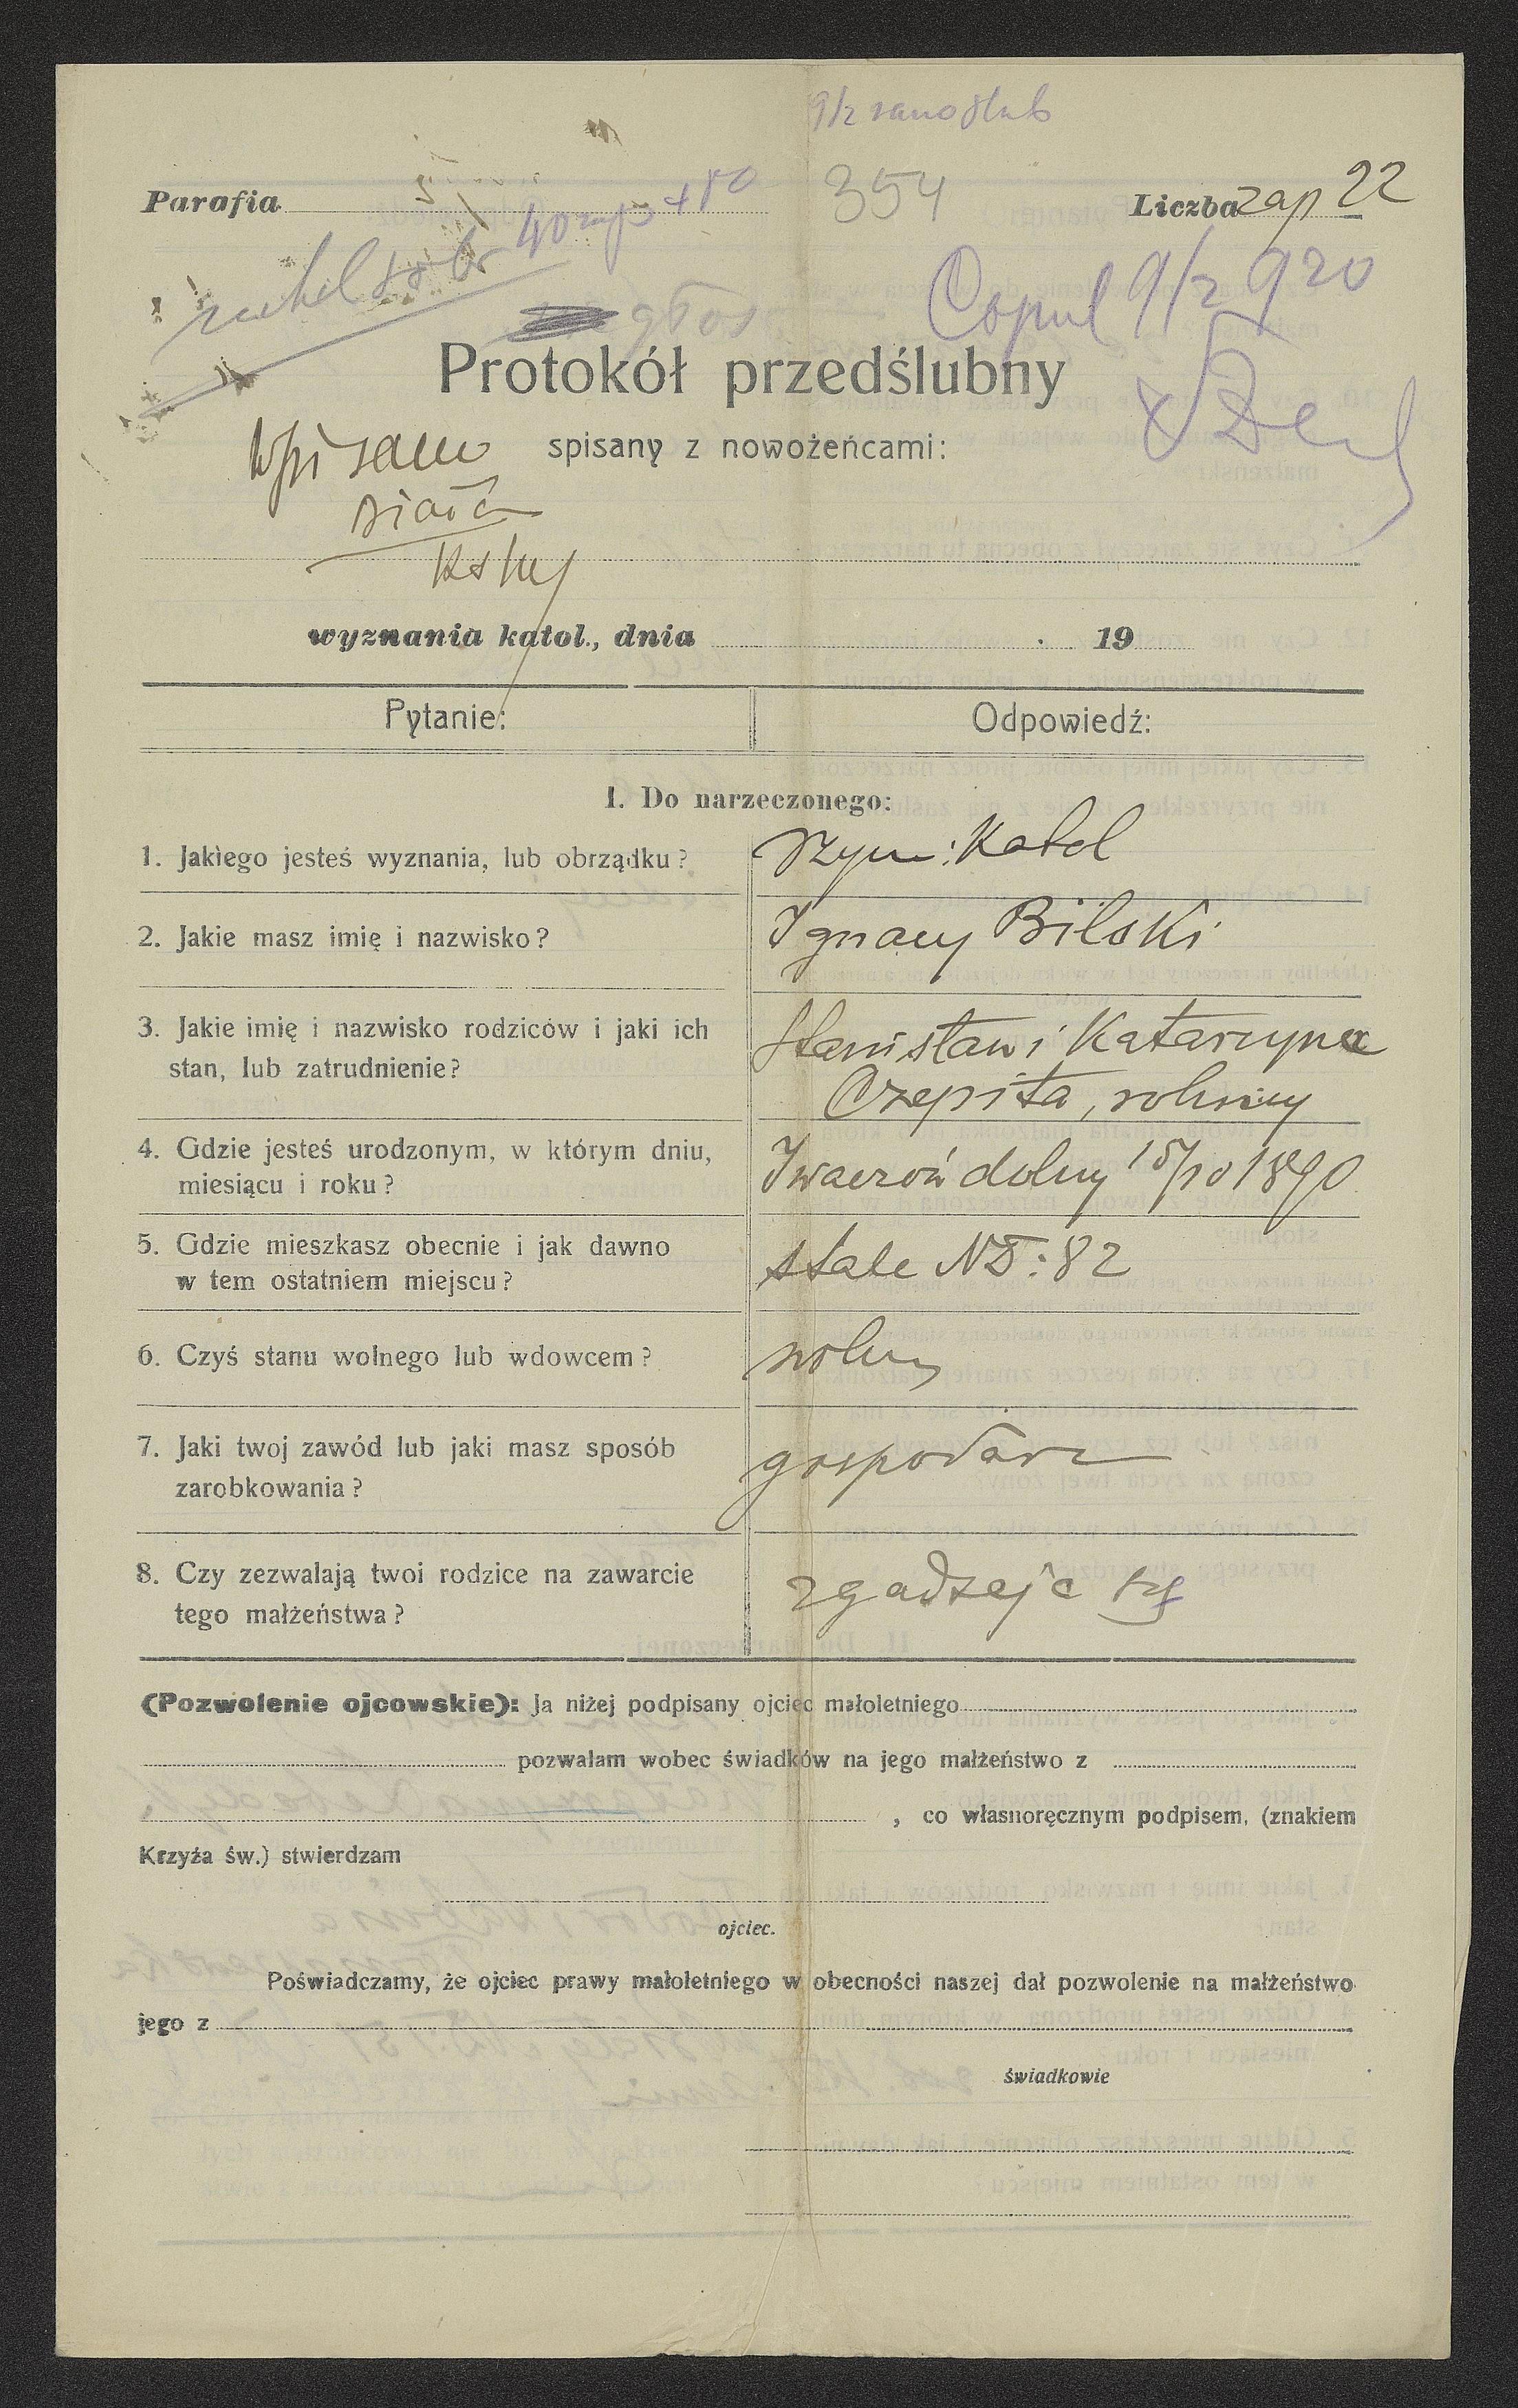 9/2 rano ślub
Parafia 40 zap + 80 354 Liczba zap 22
głos Copul 9/2 920
Protokół przedślubny
Wpisano spisany z nowożeńcami:
wyznania katol., dnia 19
Pytanie: Odpowiedź:
I. Do narzeczonego:
1. Jakiego jesteś wyznania, lub obrządku? rzym: Katol
2. Jakie masz imię i nazwisko? Ignacy Bilski
3. Jakie imię i nazwisko rodziców i jaki ich Stanisław i Katarzyna
stan, lub zatrudnienie? Czepita, rolnicy
4. Gdzie jesteś urodzonym, w którym dniu, dolny 15/10 1890
miesiącu i roku?
5. Gdzie mieszkasz obecnie i jak dawno
w tem ostatniem miejscu? stale ND: 82
6. Czyś stanu wolnego lub wdowcem? wolny
7. Jaki twoj zawód lub jaki masz sposób gospodarz
zarobkowania?
8. Czy zezwalają twoi rodzice na zawarcie zgadzają się
tego małżeństwa?
(Pozwolenie ojcowskie): Ja niżej podpisany ojciec małoletniego
pozwalam wobec świadków na jego małżeństwo z
, co własnoręcznym podpisem, (znakiem
Krzyża św.) stwierdzam
ojciec.
Poświadczamy, że ojciec prawy małoletniego w obecności naszej dał pozwolenie na małżeństwo
jego z
świadkowie